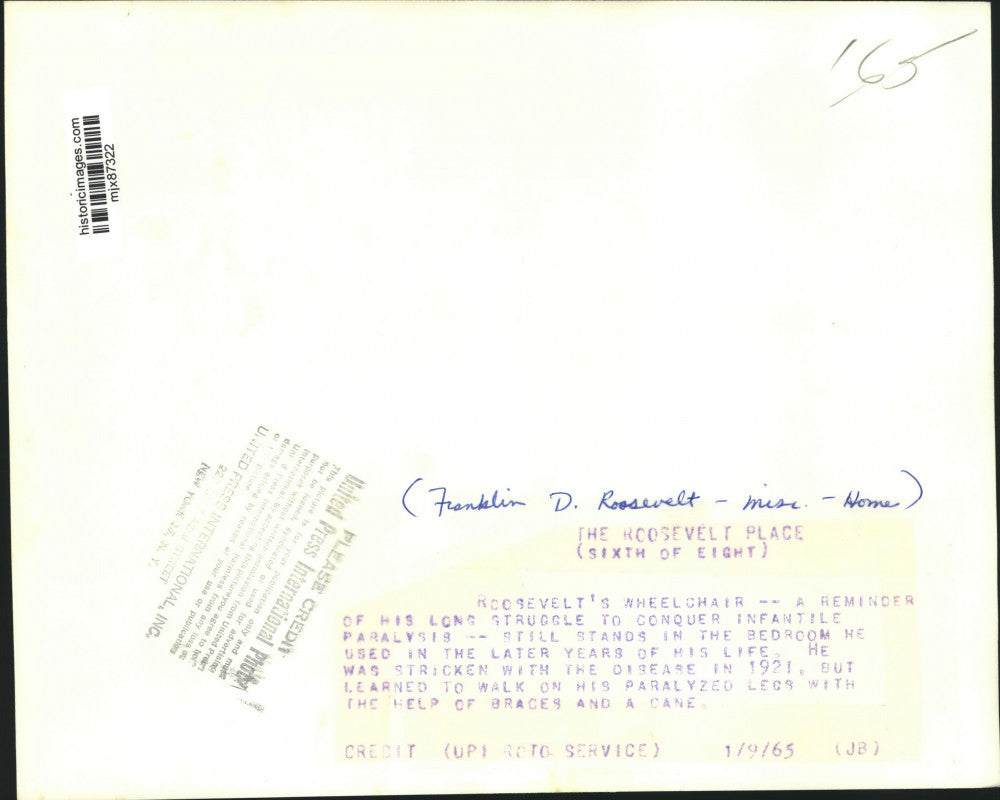 '65
historicimages.com
mjx87322
(Franklin D. Roosevelt - misc. - Home)
THE ROOSEVELT PLACE
(SIXTH OF EIGHT)
ROOSEVELT'S WHEELCHAIR -- A REMINDER
OF HIS LONG STRUGGLE TO CONQUER INFANTILE
PARALYSIS -- STILL STANDS IN THE BEDROOM HE
USED IN THE LATER YEARS OF HIS LIFE. HE
WAS STRICKEN WITH THE DISEASE IN 1921, BUT
LEARNED TO WALK ON HIS PARALYZED LEGS WITH
THE HELP OF BRACES AND A CANE.
CREDIT (UPI ROTO SERVICE) 1/9/65 (JB)
PLEASE CREDIT
United Press International Photo
This picture is for your publication only and must
not be loaned, syndicated or used for advertising
purposes without written permission from United Press
UNITED PRESS INTERNATIONAL, INC.
STREET
NEW YORK N. Y.